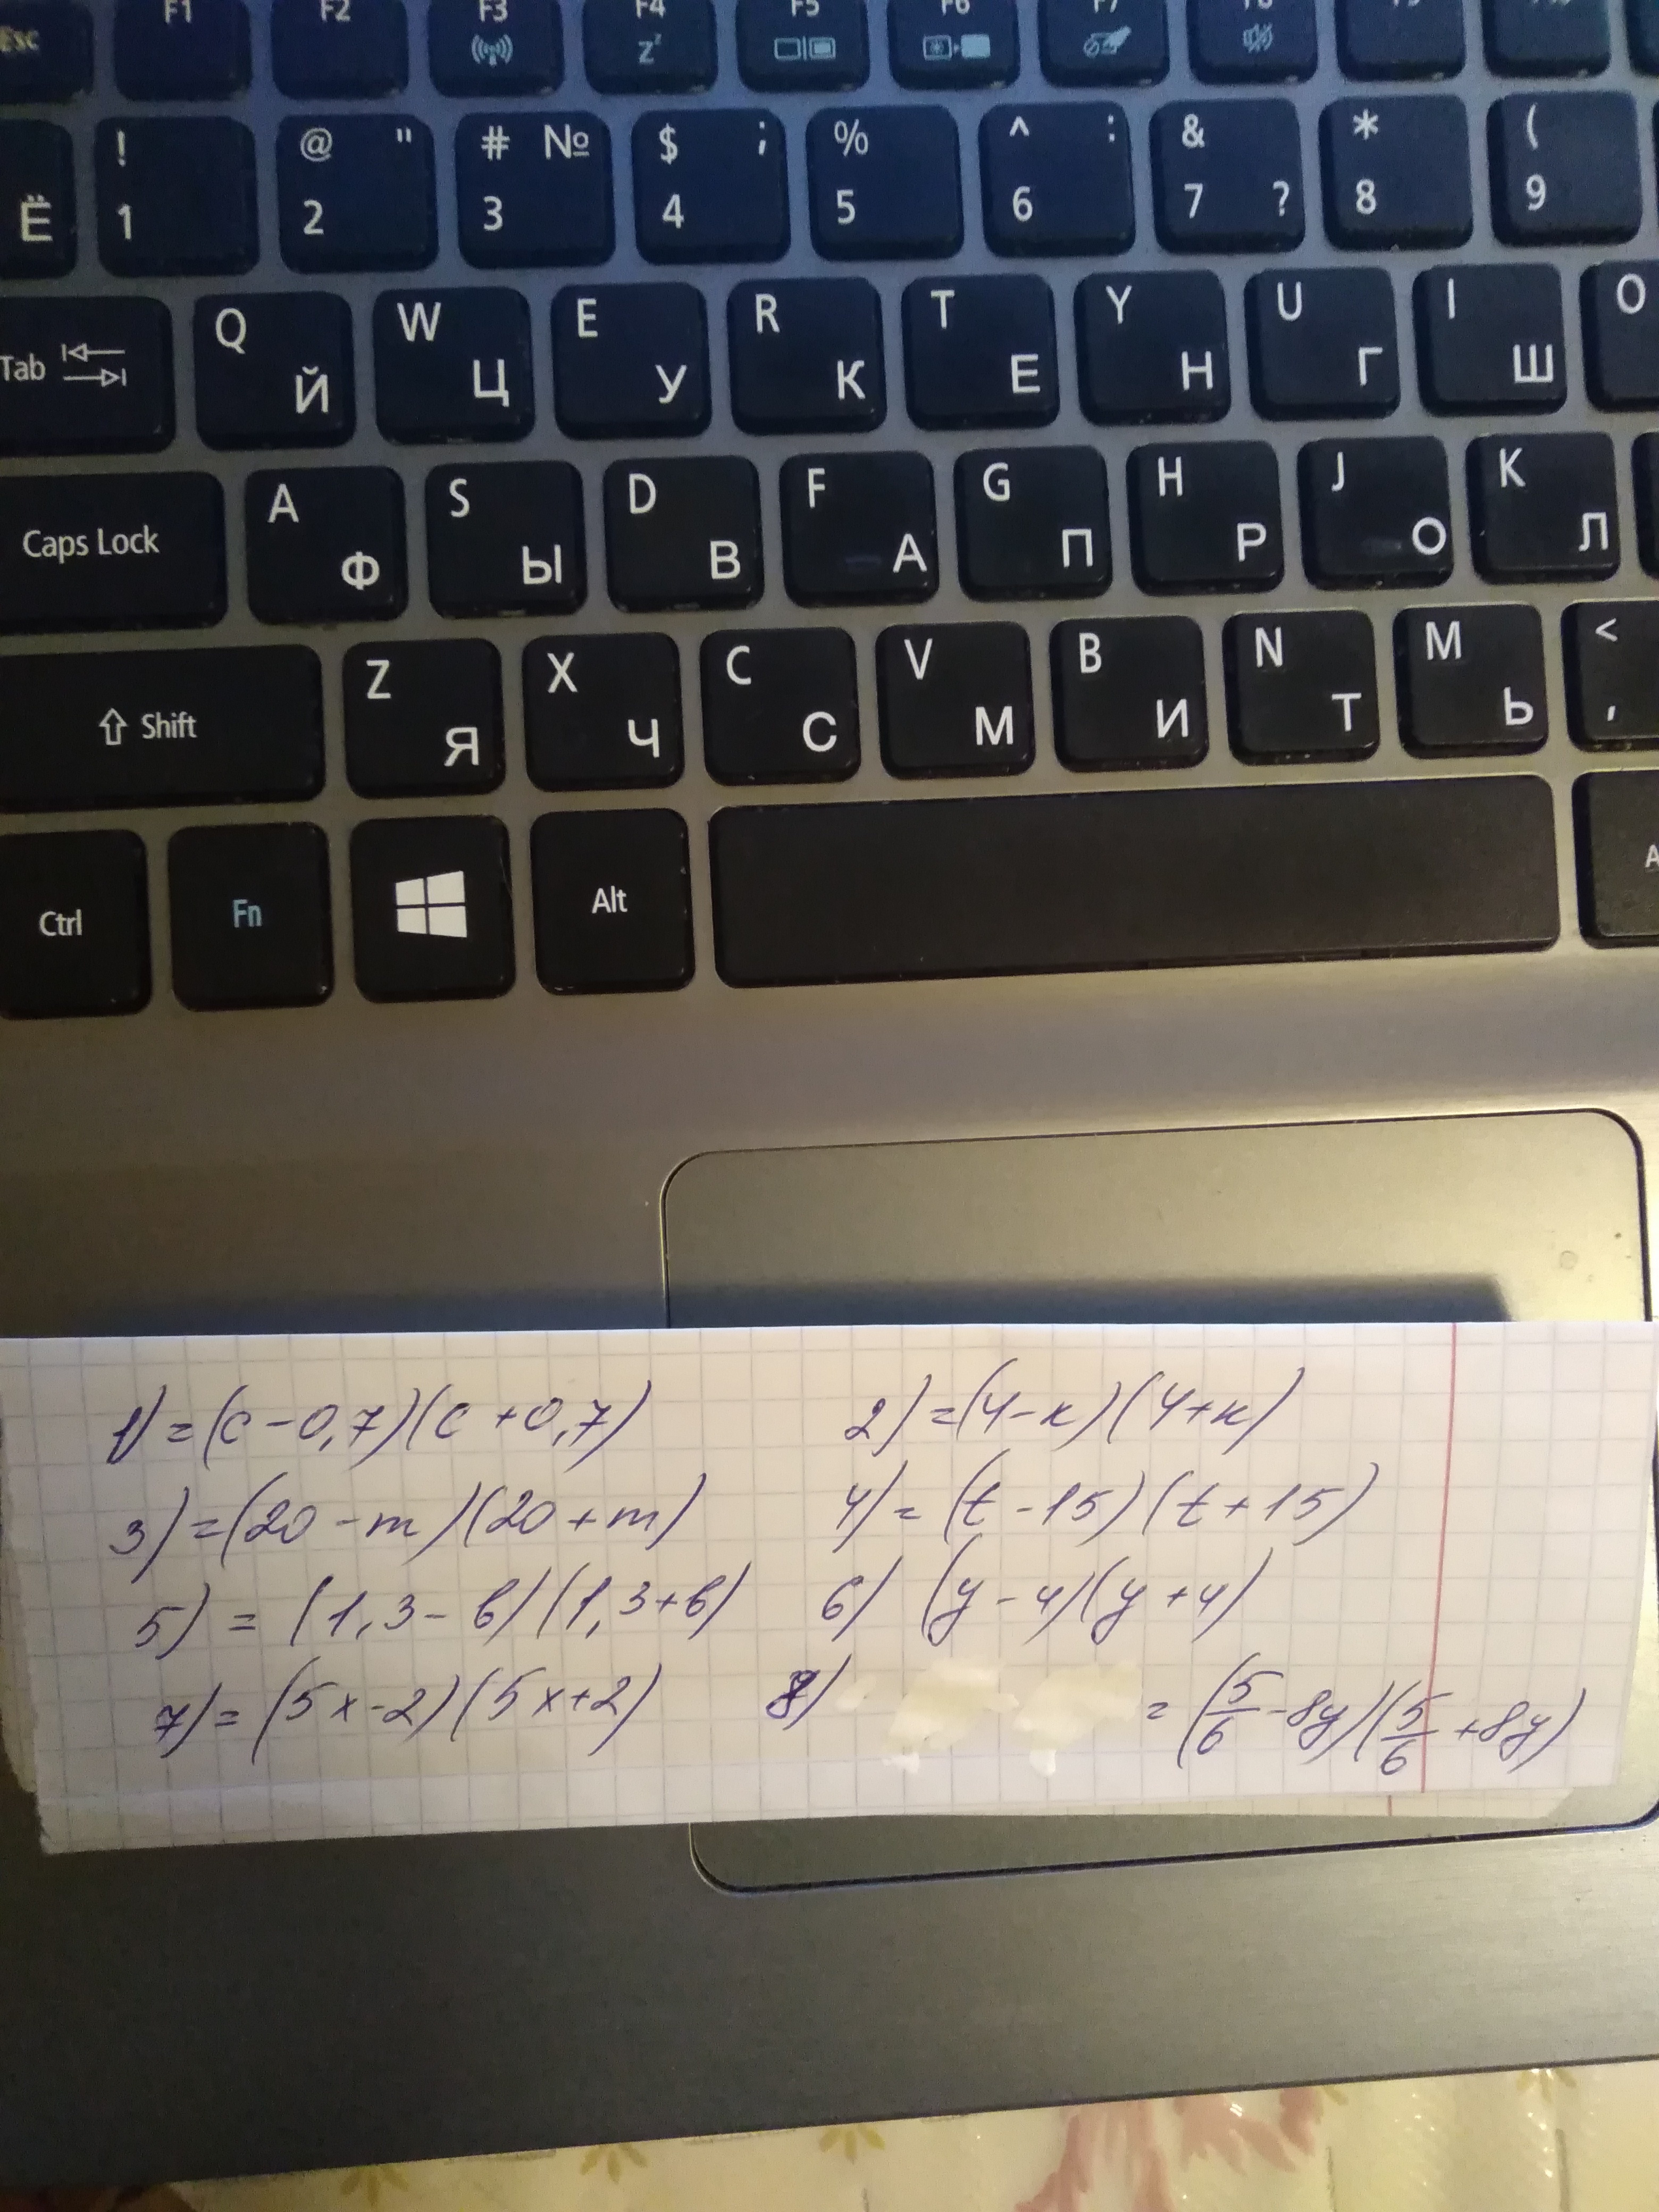 Esc F1 F2 F3 F4 F5 F6 F7 F8
z
Ё ! 1 @ " 2 # № 3 $ ; 4 % 5 ^ : 6 & 7 ? * 8 ( 9
Tab Q Й W Ц E У R К T Е Y Н U Г I Ш O
Caps Lock A Ф S Ы D В F А G П H Р J О K Л
Shift Z Я X Ч C С V М B И N Т M Ь < ,
Ctrl Fn Alt A
1) = (c - 0,7)(c + 0,7) 2) = (4 - к)(4 + к)
3) = (20 - m)(20 + m) 4) = (t - 15)(t + 15)
5) = (1,3 - b)(1,3 + b) 6) (y - 4)(y + 4)
7) = (5x - 2)(5x + 2) 8) = (5/6 - 8y)(5/6 + 8y)